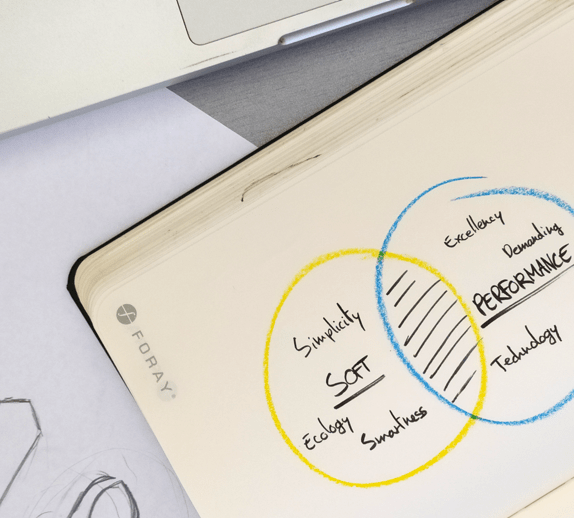 FORAY
Simplicity
SOFT
Ecology
Smartness
Excellency
Demanding
PERFORMANCE
Technology